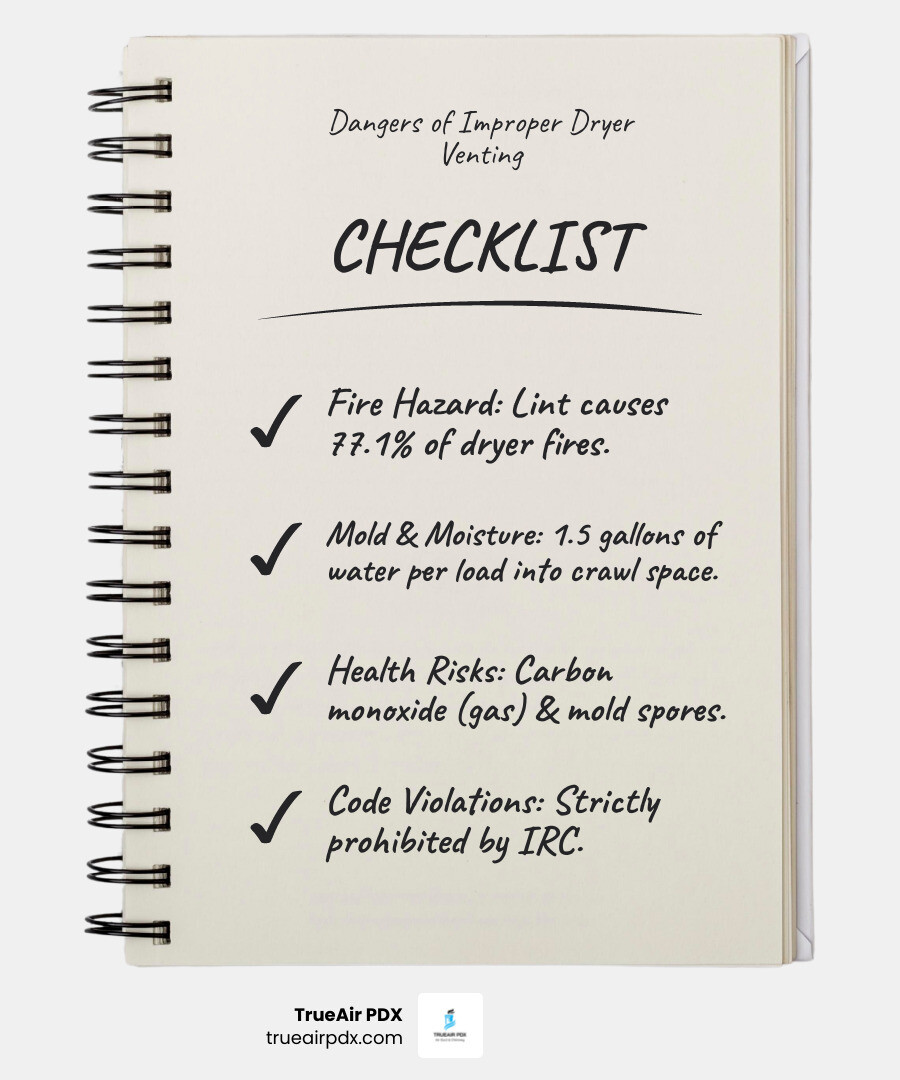 Dangers of Improper Dryer
Venting
CHECKLIST
Fire Hazard: Lint causes
77.1% of dryer fires.
Mold & Moisture: 1.5 gallons of
water per load into crawl space.
Health Risks: Carbon
monoxide (gas) & mold spores.
Code Violations: Strictly
prohibited by IRC.
TrueAir PDX
trueairpdx.com
TRUEAIR PDX